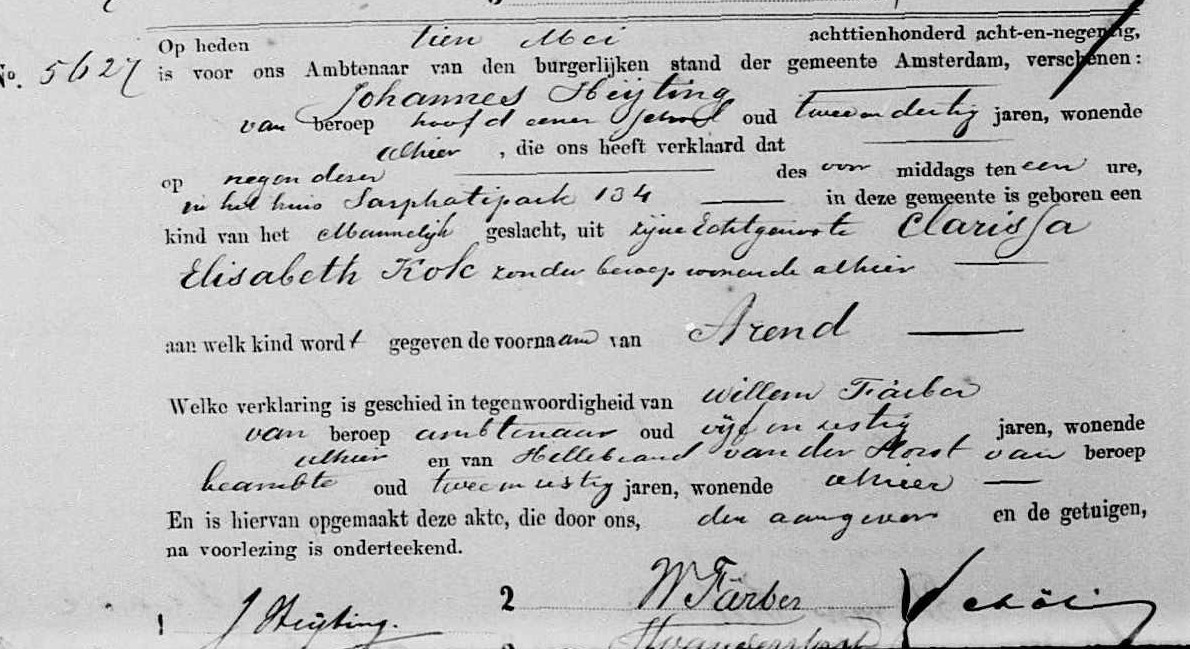 Op heden tien Mei achttienhonderd acht-en-negentig,
No. 5627 is voor ons Ambtenaar van den burgerlijken stand der gemeente Amsterdam, verschenen:
Johannes Heijting
van beroep hoofd eener school oud twee en dertig jaren, wonende
alhier , die ons heeft verklaard dat
op negen dezer des voor middags ten een ure,
in het huis Sarphatipark 134 in deze gemeente is geboren een
kind van het Mannelijk geslacht, uit zijne Echtgenoote Clarissa
Elisabeth Kok zonder beroep wonende alhier
aan welk kind wordt gegeven de voornaam van Arend
Welke verklaring is geschied in tegenwoordigheid van Willem Färber
van beroep ambtenaar oud vijf en zestig jaren, wonende
alhier en van Hillebrand van der Horst van beroep
beambte oud twee en zestig jaren, wonende alhier
En is hiervan opgemaakt deze akte, die door ons, den aangever en de getuigen,
na voorlezing is onderteekend.
1 J Heijting. 2 W Färber
Hvanderhorst